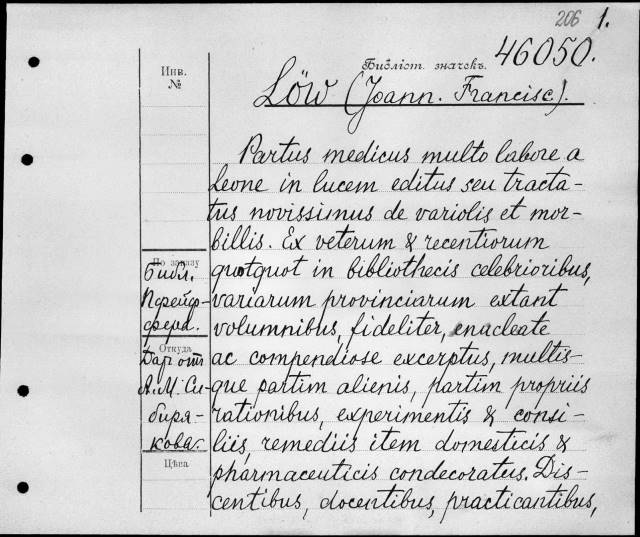 206 1.
Библіот. значекъ. 46050.
Инв.
№
Löw (Joann. Francisc.).
Partus medicus multo labore a
Leone in lucem editus seu tracta-
tus novissimus de variolis et mor-
billis. Ex veterum & recentiorum
quotquot in bibliothecis celebrioribus,
variarum provinciarum extant
volumnibus, fideliter, enucleate
ac compendiose excerptus, multis-
que partim alienis, partim propriis
rationibus, experimentis & consi-
liis, remediis item domesticis &
pharmaceuticis condecoratus. Dis-
centibus, docentibus, practicantibus,
По заказу
Библ.
Пфейф-
фера.
Откуда
Даръ отъ
А. М. Си-
биря-
кова.
Цѣна